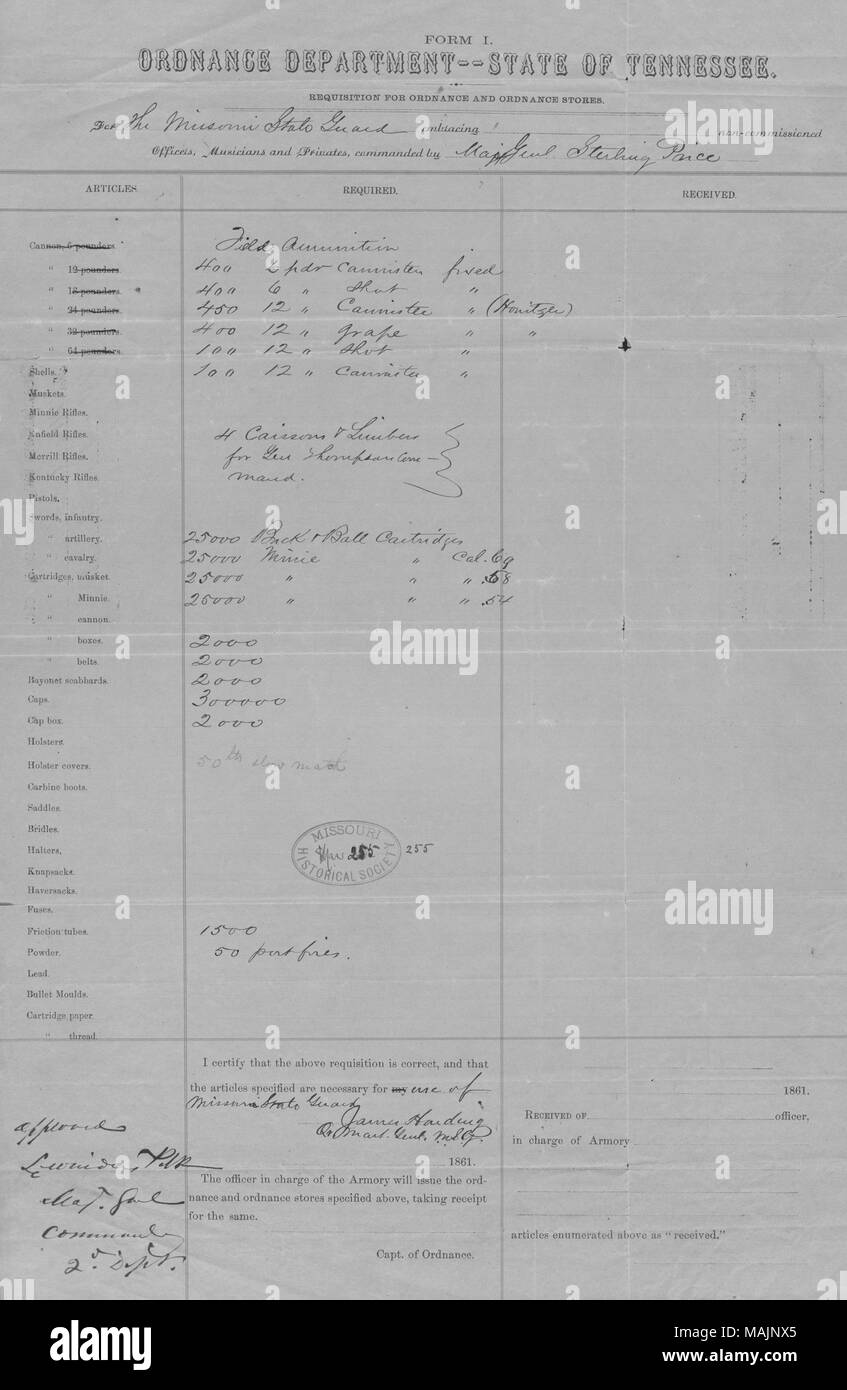 FORM I.
ORDNANCE DEPARTMENT--STATE OF TENNESSEE.
REQUISITION FOR ORDNANCE AND ORDNANCE STORES.
For the Missouri State Guard embracing non-commissioned
Officers, Musicians and Privates, commanded by Maj Genl Sterling Price
ARTICLES. REQUIRED. RECEIVED.
Cannon, 6 pounders. Field Ammunition
" 12 pounders. 400 6 pdr Cannister fixed
" 18 pounders. 400 6 " Shot "
" 24 pounders. 450 12 " Cannister " (Howitzer)
" 32 pounders. 400 12 " grape " "
" 64 pounders. 100 12 " Shot "
Shells. 100 12 " Cannister "
Muskets.
Minnie Rifles.
Enfield Rifles. 4 Caissons & Limbers
Merrill Rifles. for Gen Thompson's Com-
Kentucky Rifles. mand.
Pistols.
Swords, infantry.
" artillery. 25000 Buck & Ball Cartridges
" cavalry. 25000 Minie " Cal. 69
Cartridges, musket. 25000 " " " .58
" Minnie. 25000 " " " .54
" cannon.
" boxes. 2000
" belts. 2000
Bayonet scabbards. 2000
Caps. 300000
Cap box. 2000
Holsters.
Holster covers. 50 lbs slow match
Carbine boots.
Saddles.
Bridles.
Halters.
MISSOURI HISTORICAL SOCIETY
255 255
Knapsacks.
Haversacks.
Fuses.
Friction tubes. 1500
Powder. 50 port fires.
Lead.
Bullet Moulds.
Cartridge paper.
" thread.
I certify that the above requisition is correct, and that
the articles specified are necessary for my use of
Missouri State Guard
James Harding
Qr Mast. Genl. M.S.G.
1861.
The officer in charge of the Armory will issue the ord-
nance and ordnance stores specified above, taking receipt
for the same.
Capt. of Ordnance.
approved
Leonidas Polk
Maj. Genl
Commandg
2d Dept.
1861.
RECEIVED OF officer.
in charge of Armory
articles enumerated above as "received."
a alamy
alamy
Image ID: MAJNX5
www.alamy.com